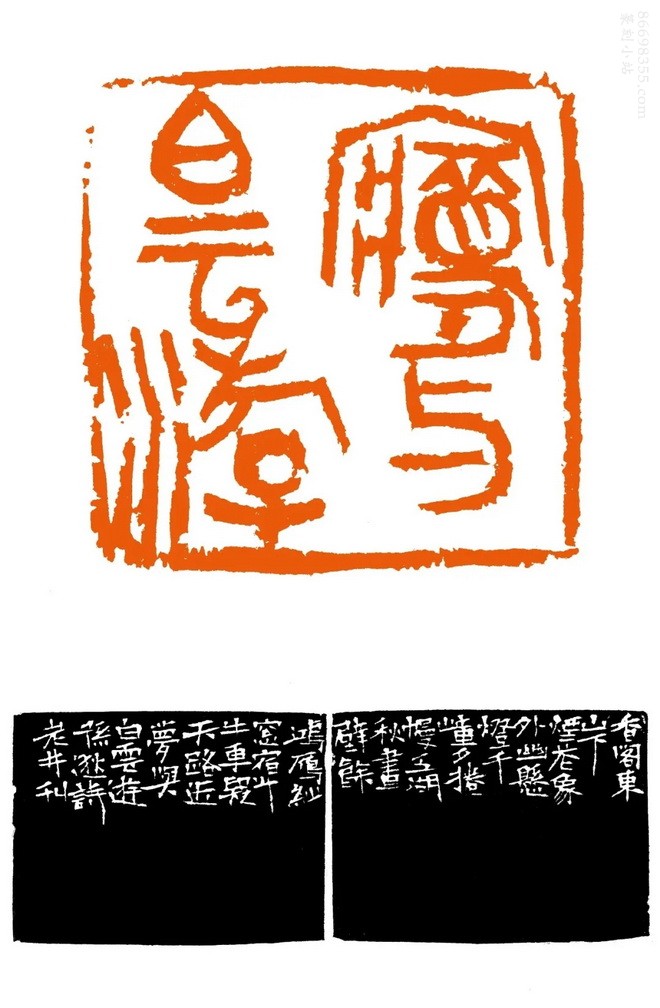 夢与
白云游
香閣東
山下
煙花象
外幽懸
燈千
嶂夕捲
幔五湖
秋畫
壁餘
鴻雁紗
窗宿斗
牛更疑
天路近
夢與
白雲遊
孫逖詩
老井刊
86698355.com
篆刻小站